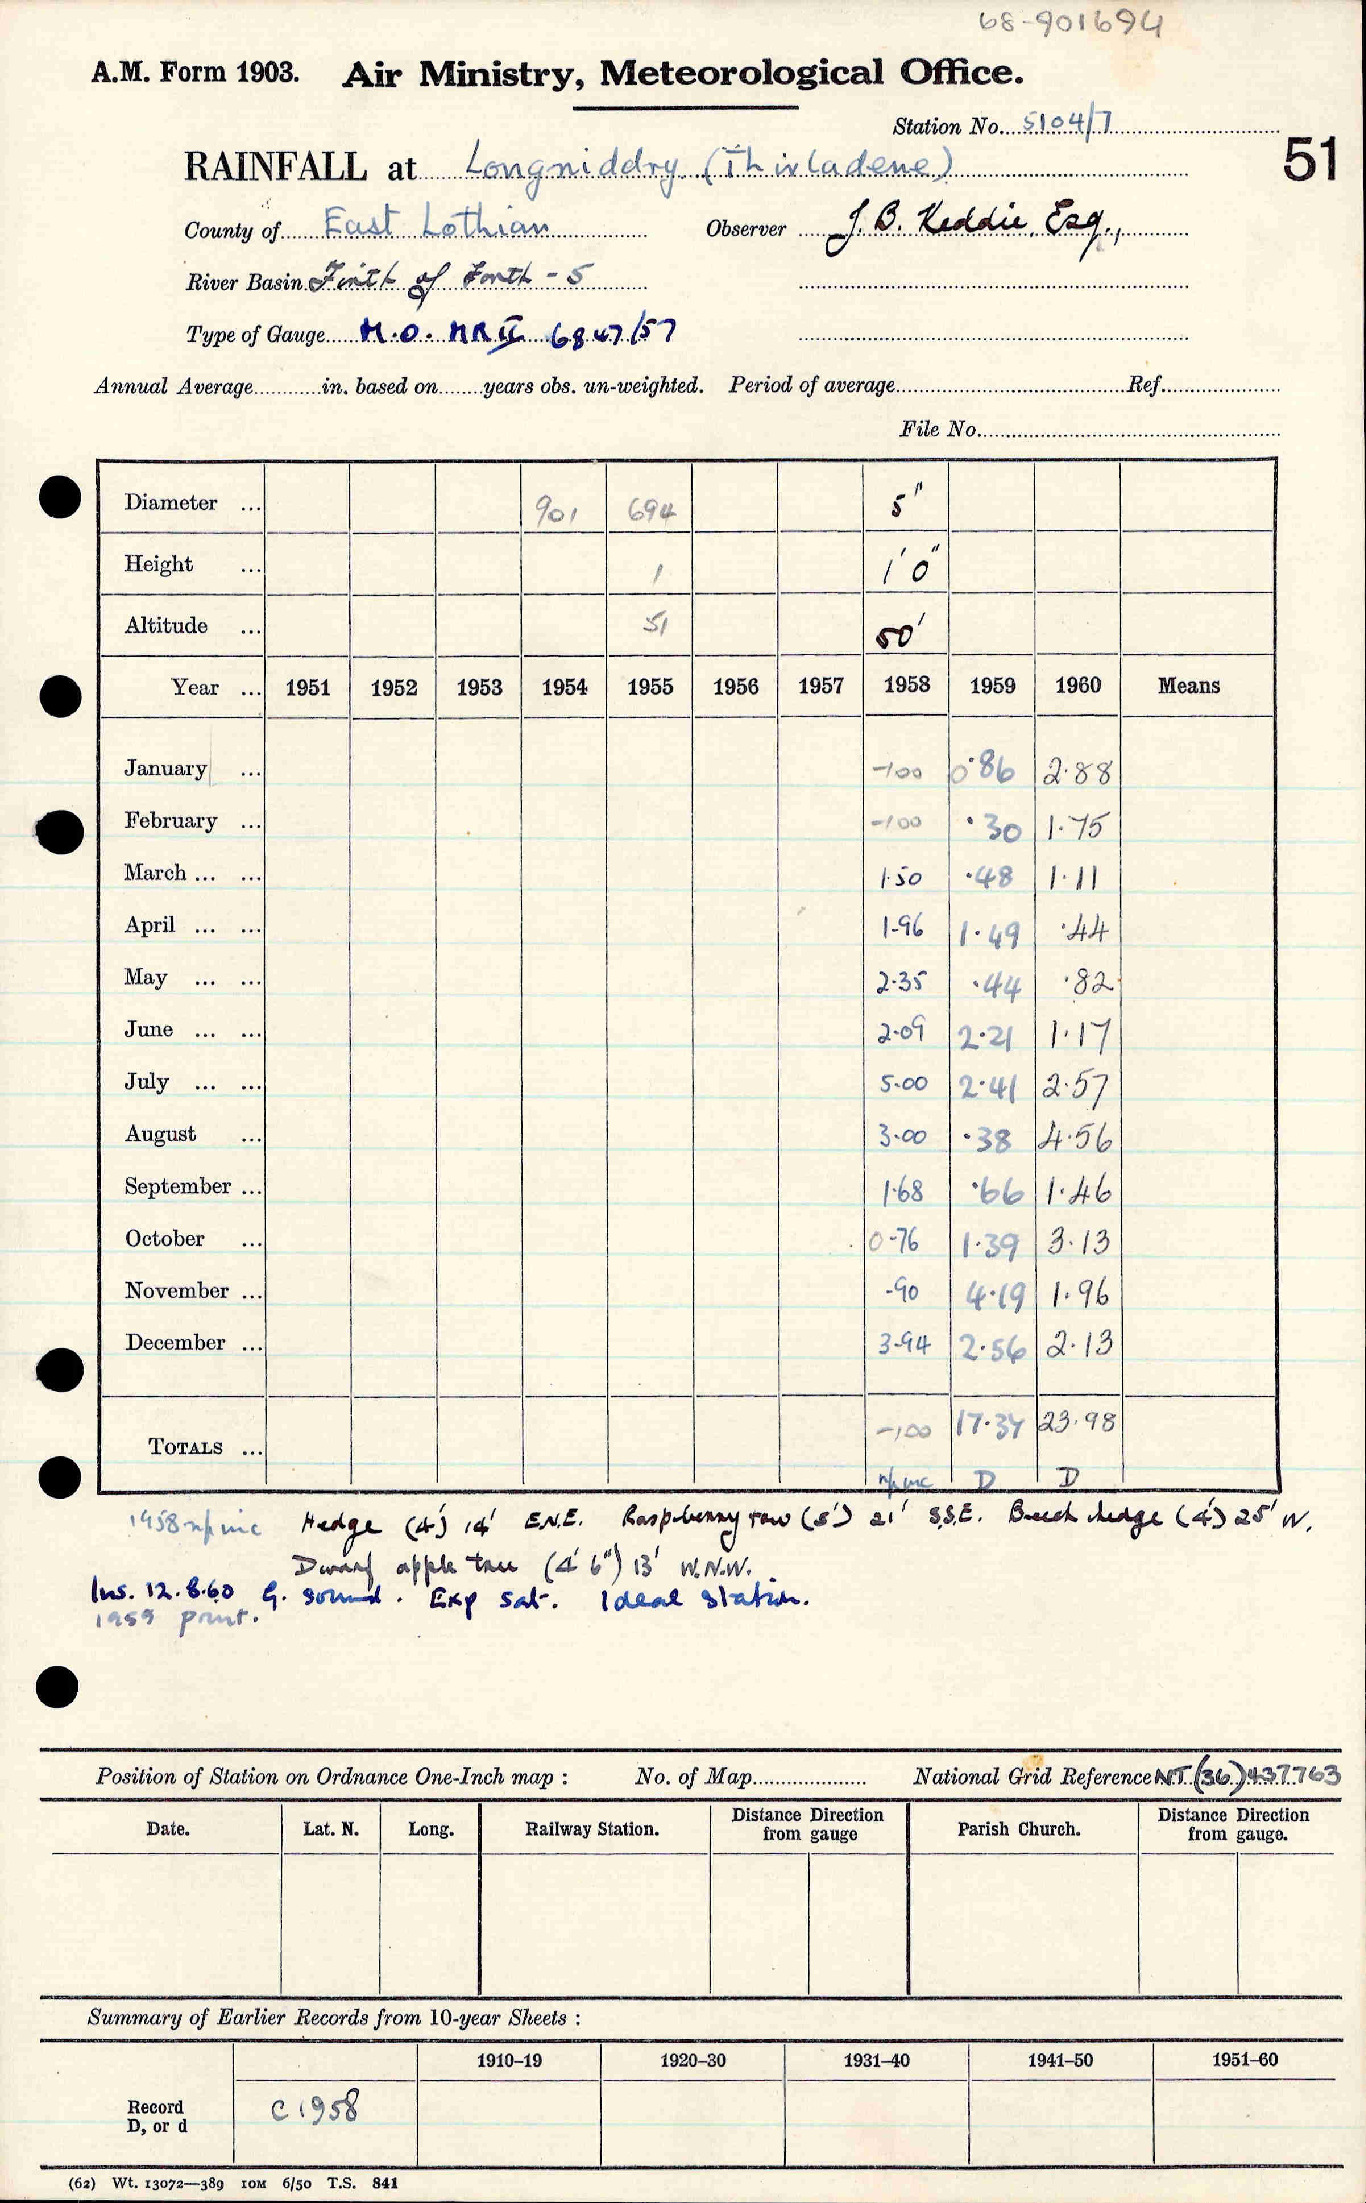 68-901694
A.M. Form 1903. Air Ministry, Meteorological Office.
Station No. 5104/7
51
RAINFALL at Longniddry (Thirladene)
County of East Lothian Observer J. B. Keddie, Esq.,
River Basin Firth of Forth - 5
Type of Gauge M.O. MK II 6847/57
Annual Average in. based on years obs. un-weighted. Period of average Ref.
File No.
Diameter ... 901 694 5"
Height ... 1 1' 0"
Altitude ... 51 50'
Year ... 1951 1952 1953 1954 1955 1956 1957 1958 1959 1960 Means
January ... -100 0.86 2.88
February ... -100 .30 1.75
March ... ... 1.50 .48 1.11
April ... ... 1.96 1.49 .44
May ... ... 2.35 .44 .82
June ... ... 2.09 2.21 1.17
July ... ... 5.00 2.41 2.57
August ... 3.00 .38 4.56
September ... 1.68 .66 1.46
October ... 0.76 1.39 3.13
November ... .90 4.19 1.96
December ... 3.94 2.56 2.13
TOTALS ... -100 17.37 23.98
n/p inc D D
1958 n/p inc Hedge (4') 14' E.N.E. Raspberry row (5') 21' S.S.E. Beech hedge (4') 25' W.
Dwarf apple tree (4' 6") 13' W.N.W.
Ins. 12.8.60 G. sound. Exp sat. Ideal station.
1959 print.
Position of Station on Ordnance One-Inch map : No. of Map National Grid Reference NT (36) 437763
Date. Lat. N. Long. Railway Station. Distance Direction from gauge Parish Church. Distance Direction from gauge.
Summary of Earlier Records from 10-year Sheets :
1910–19 1920–30 1931–40 1941–50 1951–60
Record D, or d C 1958
(62) Wt. 13072—389 10M 6/50 T.S. 841